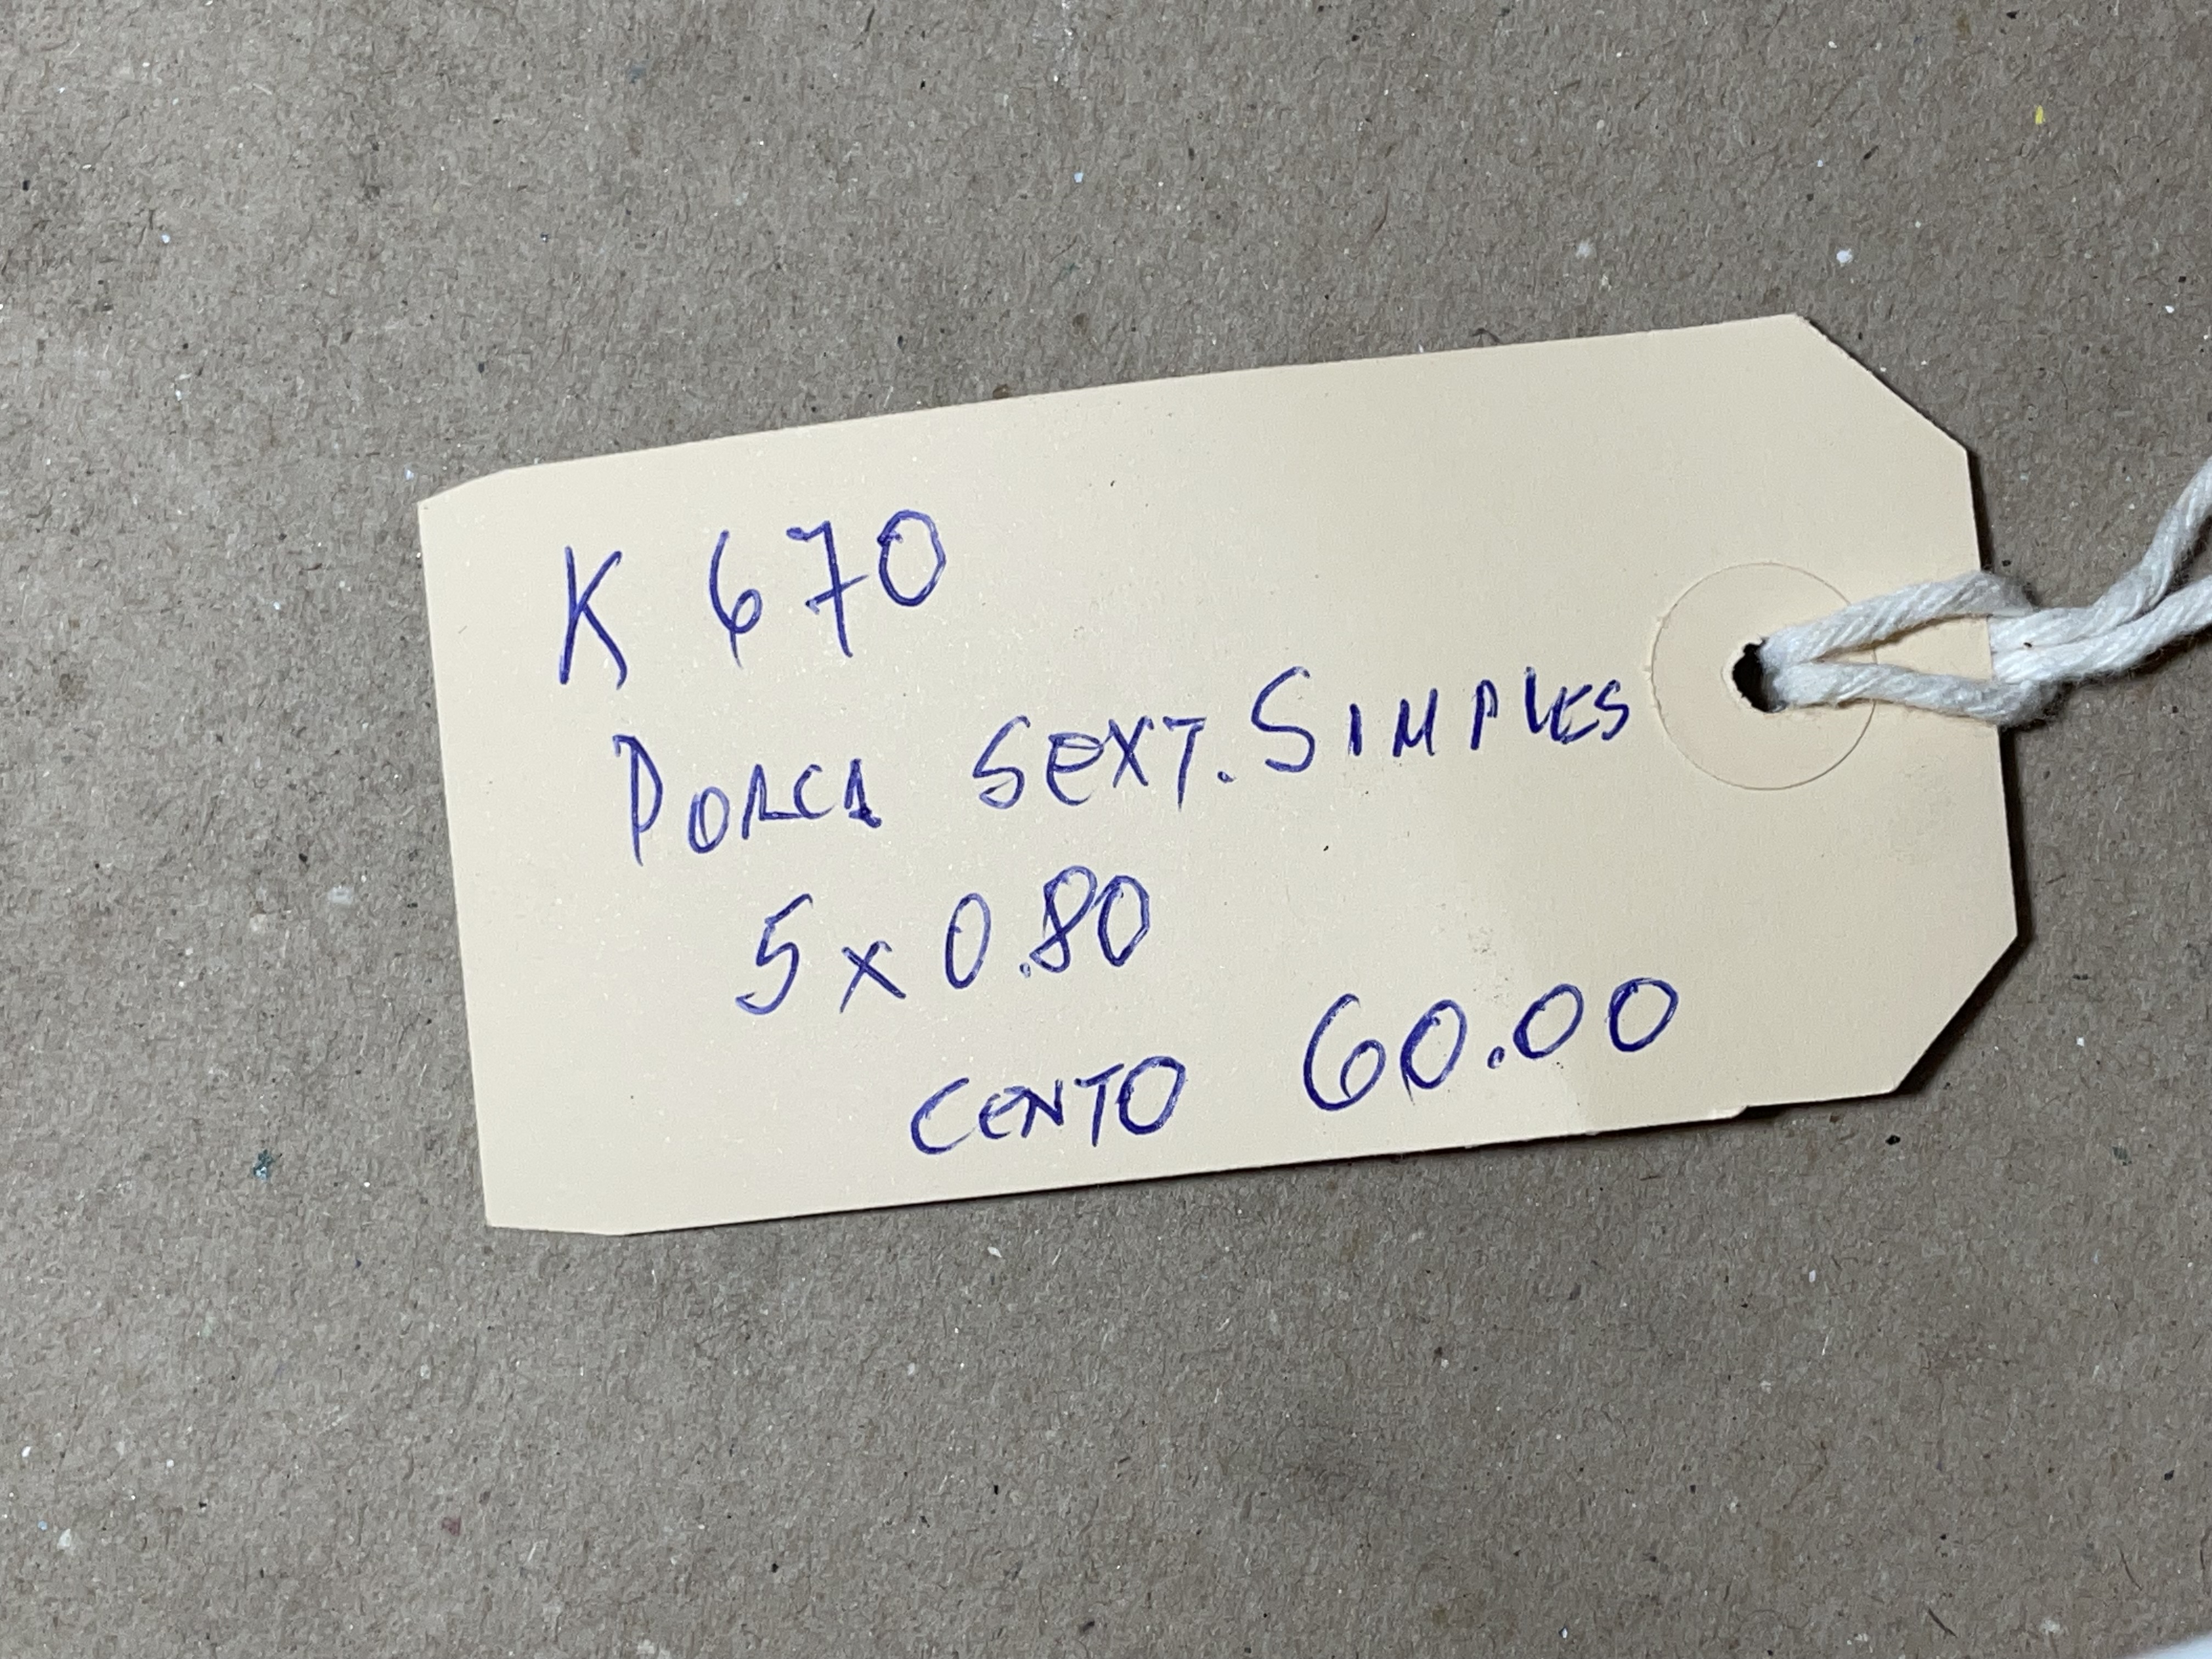 K 670
PORCA SEXT. SIMPLES
5 x 0.80
CENTO 60.00